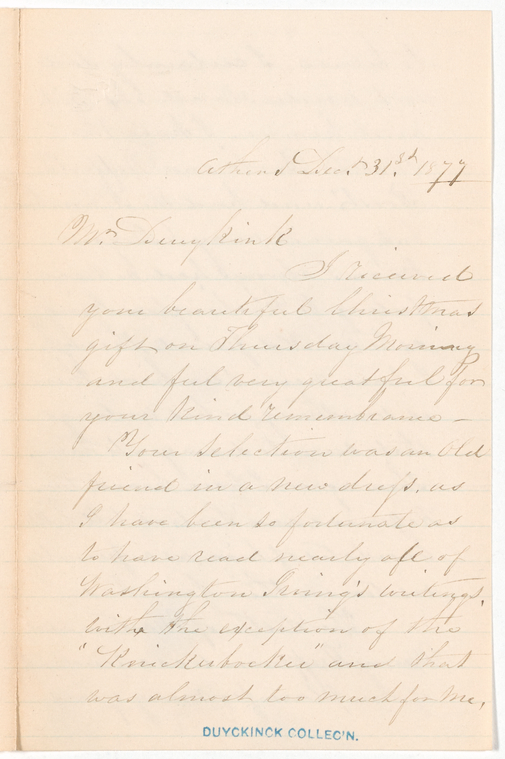 Athens Dec. 31st. 1877
Mr. Duuykink
I received
your beautiful Christmas
gift on Thursday Morning
and feel very greatful for
your kind remembrance -
Your selection was an Old
friend in a new dress, as
I have been so fortunate as
to have read nearly all of
Washington Irving's writings,
with the exception of the
"Knickerbocker" and that
was almost too much for me,
DUYCKINCK COLLEC'N.